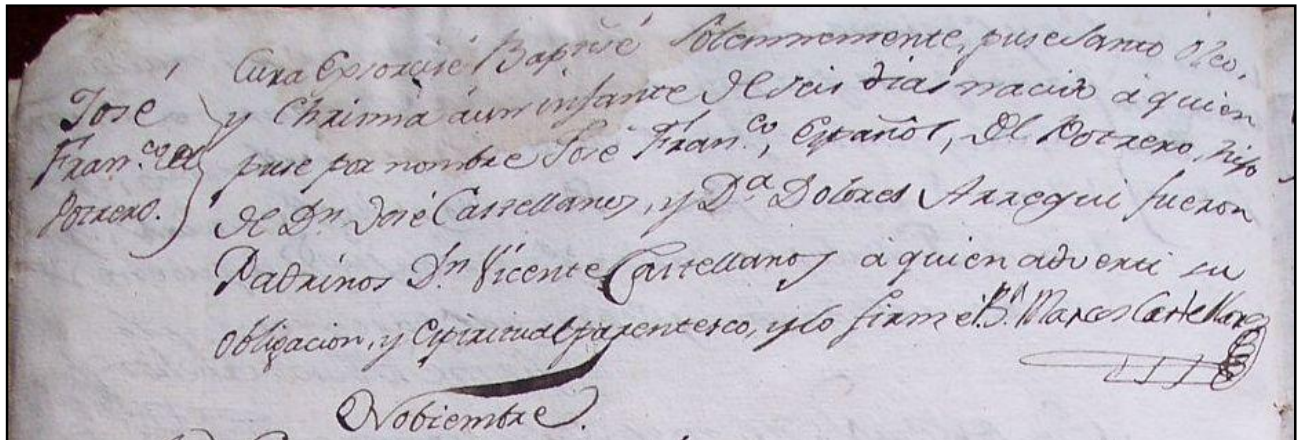 José
Fran.co del
Potrero.
Cura Exsorcisé Baptisé Solemnemente, puse Santo Oleo,
y Chrisma á un infante de seis dias nacido á quien
puse por nombre José Fran.co, Español, del Potrero, hijo
de Dn José Castellanos, y Da Dolores Arregui fueron
Padrinos Dn Vicente Castellanos a quien adverti su
obligacion, y Espiritual parentesco, y lo firmé Br Marcos Castellanos
Nobiembre.